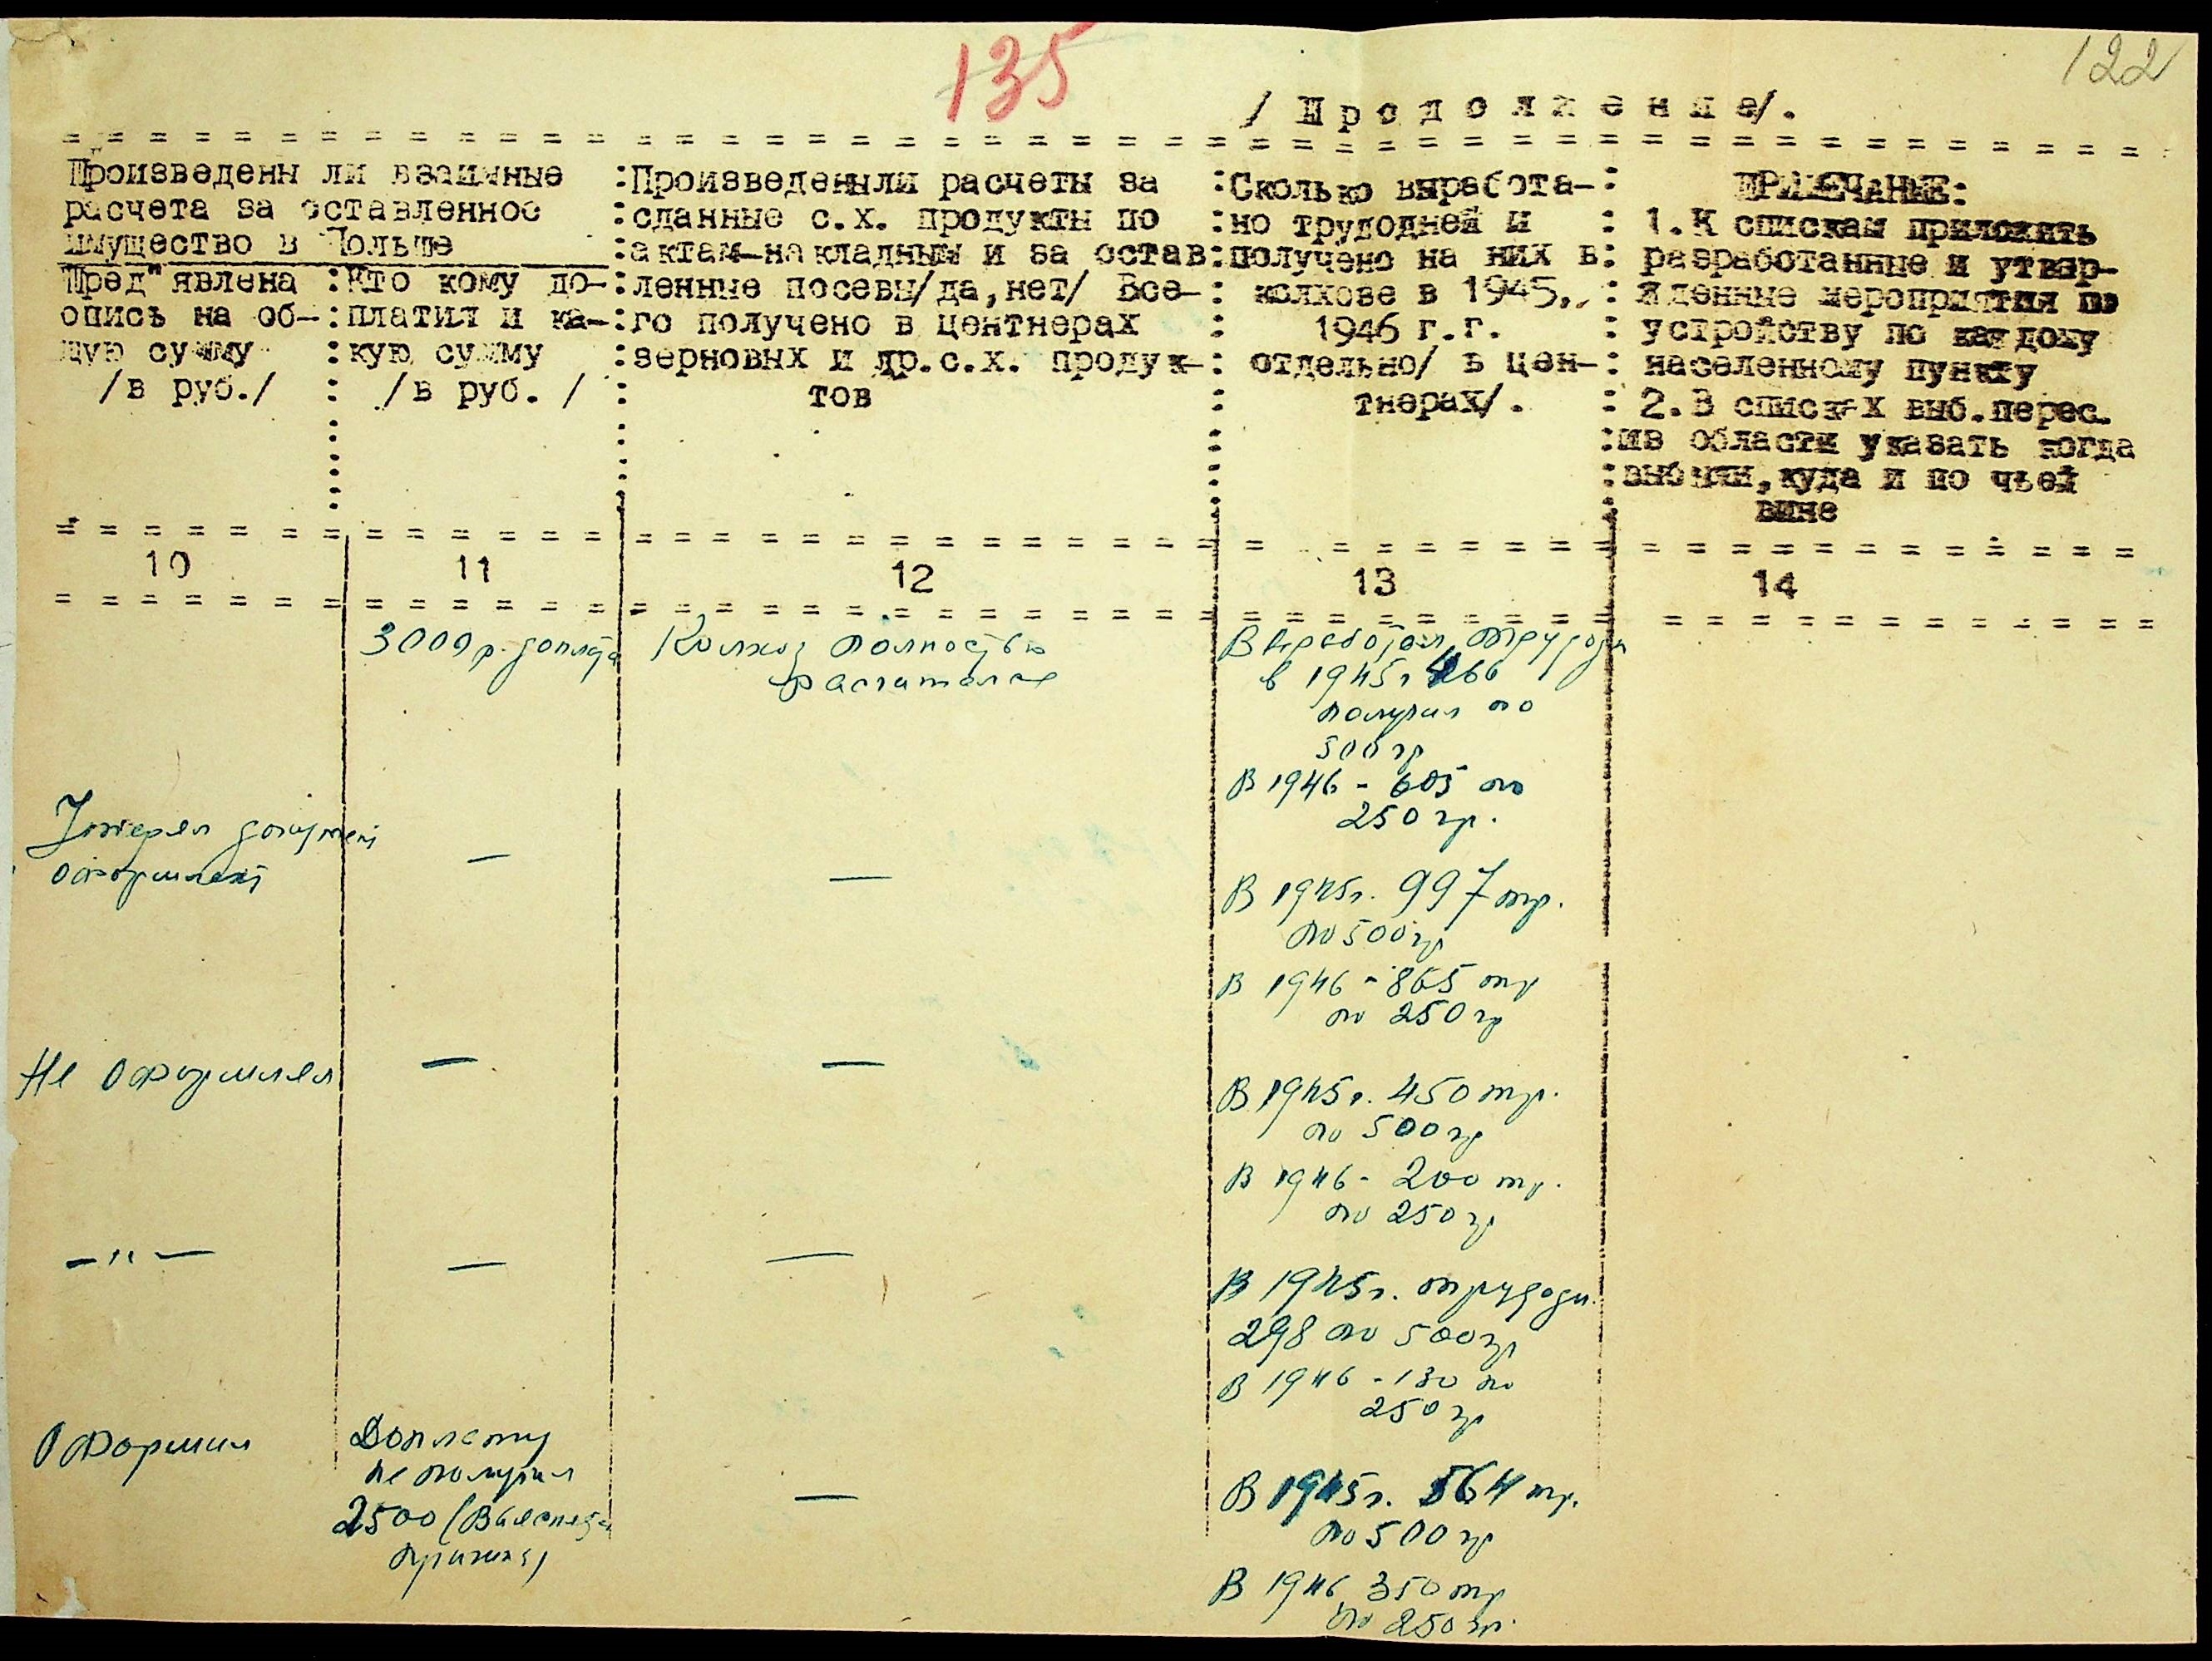 135
122
/ П р о д о л ж е н и е/.
Произведены ли взаимные
расчета за оставленное
имущество в Польше
Пред"явлена
опись на об-
щую сумму
/в руб./
Кто кому до-
платил и ка-
кую сумму
/в руб. /
Произведены ли расчеты за
сданные с.х. продукты по
актам-накладным и за остав
ленные посевы/да,нет/ Все-
го получено в центнерах
зерновых и др.с.х. продук-
тов
Сколько выработа-
но трудодней и
получено на них в
колхозе в 1945,,
1946 г.г.
отдельно/ в цен-
тнерах/.
ПРИМЕЧАНИЕ:
1.К спискам приложить
разработанные и утвер-
жденные мероприятия по
устройству по каждому
населенному пункту
2.В списках выб.перес.
из области указать когда
выбыли,куда и по чьей
вине
10
11
12
13
14
3000 р. доплата
Колхоз полностью
расчитался
Выработал трудодн
в 1945 г 466
получил по
500 гр
В 1946 - 605 по
250 гр.
Утерял документ
—
—
В 1945 г. 997 тр.
по 500 гр
В 1946 - 865 тр
по 250 гр
Не оформлял
—
—
В 1945 г. 450 тр.
по 500 гр
В 1946 - 200 тр.
по 250 гр
— " —
—
—
В 1945 г. трудодн.
298 по 500 гр
В 1946 - 130 по
250 гр
Оформил
Доплату
не получил
2500
—
В 1945 г. 564 тр.
по 500 гр
В 1946 350 тр
по 250 гр.